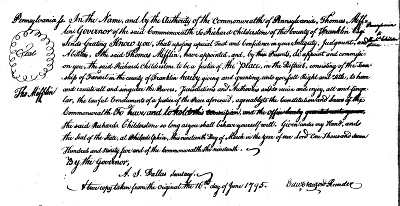 Pennsylvania Ss. In the Name, and by the Authority of the Commonwealth of Pennsylvania, Thomas Miff-
lin Governor of the said Commonwealth to Richard Childerstone of the County of Franklin Esq.
Sends Greeting Know you, that reposing especial Trust and Confidence in your integrity, Judgment, and
Ability, I the said Thomas Mifflin, have appointed, and by these Presents, do appoint and commissi-
on you, the said Richard Childerstone to be a Justice of the Peace, in the District, consisting of the Town-
ship of Fannet in the county of Franklin hereby giving and granting unto you full Right and title, to have
and execute all and singular the Powers, Jurisdictions and Authorities and to receive and enjoy, all and singu-
lar, the lawful Emoluments of a Justice of the Peace aforesaid, agreeably to the Constitution and Laws of the
Commonwealth To have and to hold this
the said Richard Childerstone so long as you shall behave yourself well. Given under my Hand, and
the Seal of the State, at Philadelphia, the nineteenth Day of March in the year of our Lord One Thousand seven
Hundred and ninety five and of the Commonwealth the nineteenth.
By the Governor,
A. J. Dallas Secretary
A true copy taken from the original the 16th day of June 1795.
Edw. Crawford Recorder
Seal
Tho Mifflin